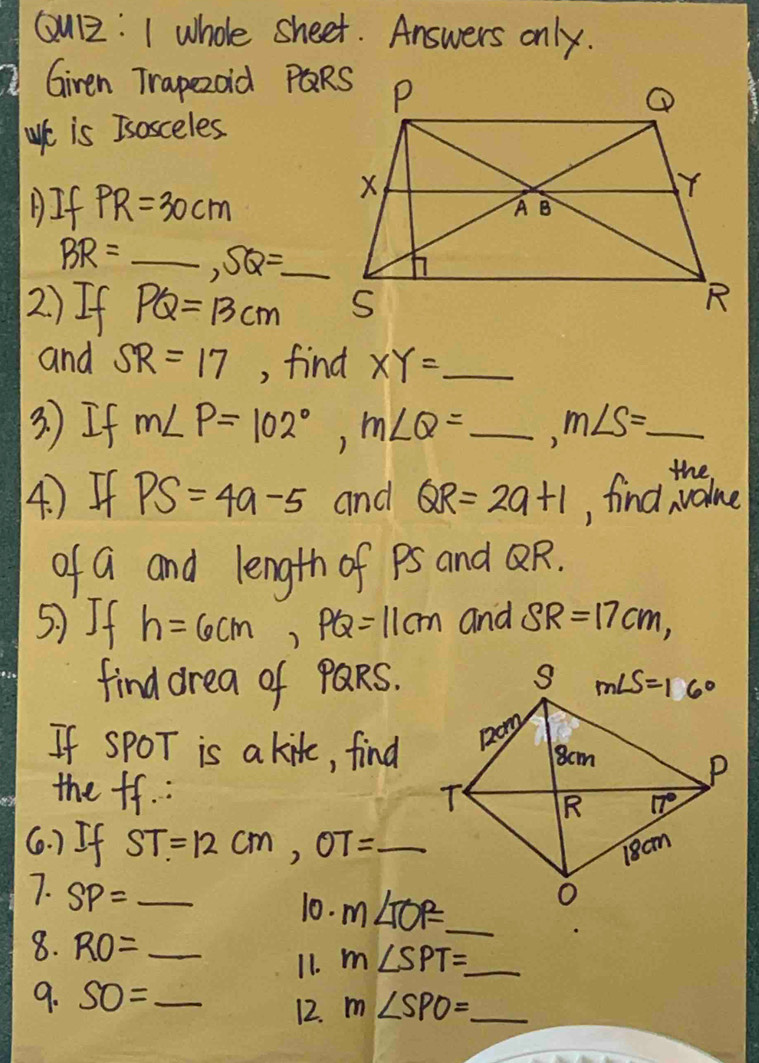 QUIZ: 1 whole sheet. Answers only.
Given Trapezoid PQRS
w/c is Isosceles
P Q
X Y
A B
S R
1) If PR = 30 cm
BR = ____, SQ = ____
2.) If PQ = 13 cm
and SR = 17 , find XY = ____
3.) If m∠P = 102° , m∠Q = ____ , m∠S = ____
4.) If PS = 4a - 5 and QR = 2a + 1 , find the value
of a and length of PS and QR.
5.) If h = 6cm , PQ = 11cm and SR = 17cm,
find area of PQRS.
S m∠S=1 6°
12cm
8cm
T R 17° P
18cm
O
If SPOT is a kite, find
the ff.:
6.) If ST = 12 cm , OT = ____
7. SP = ____
8. RO = ____
9. SO = ____
10. m∠TOP= ____
11. m∠SPT= ____
12. m∠SPO= ____